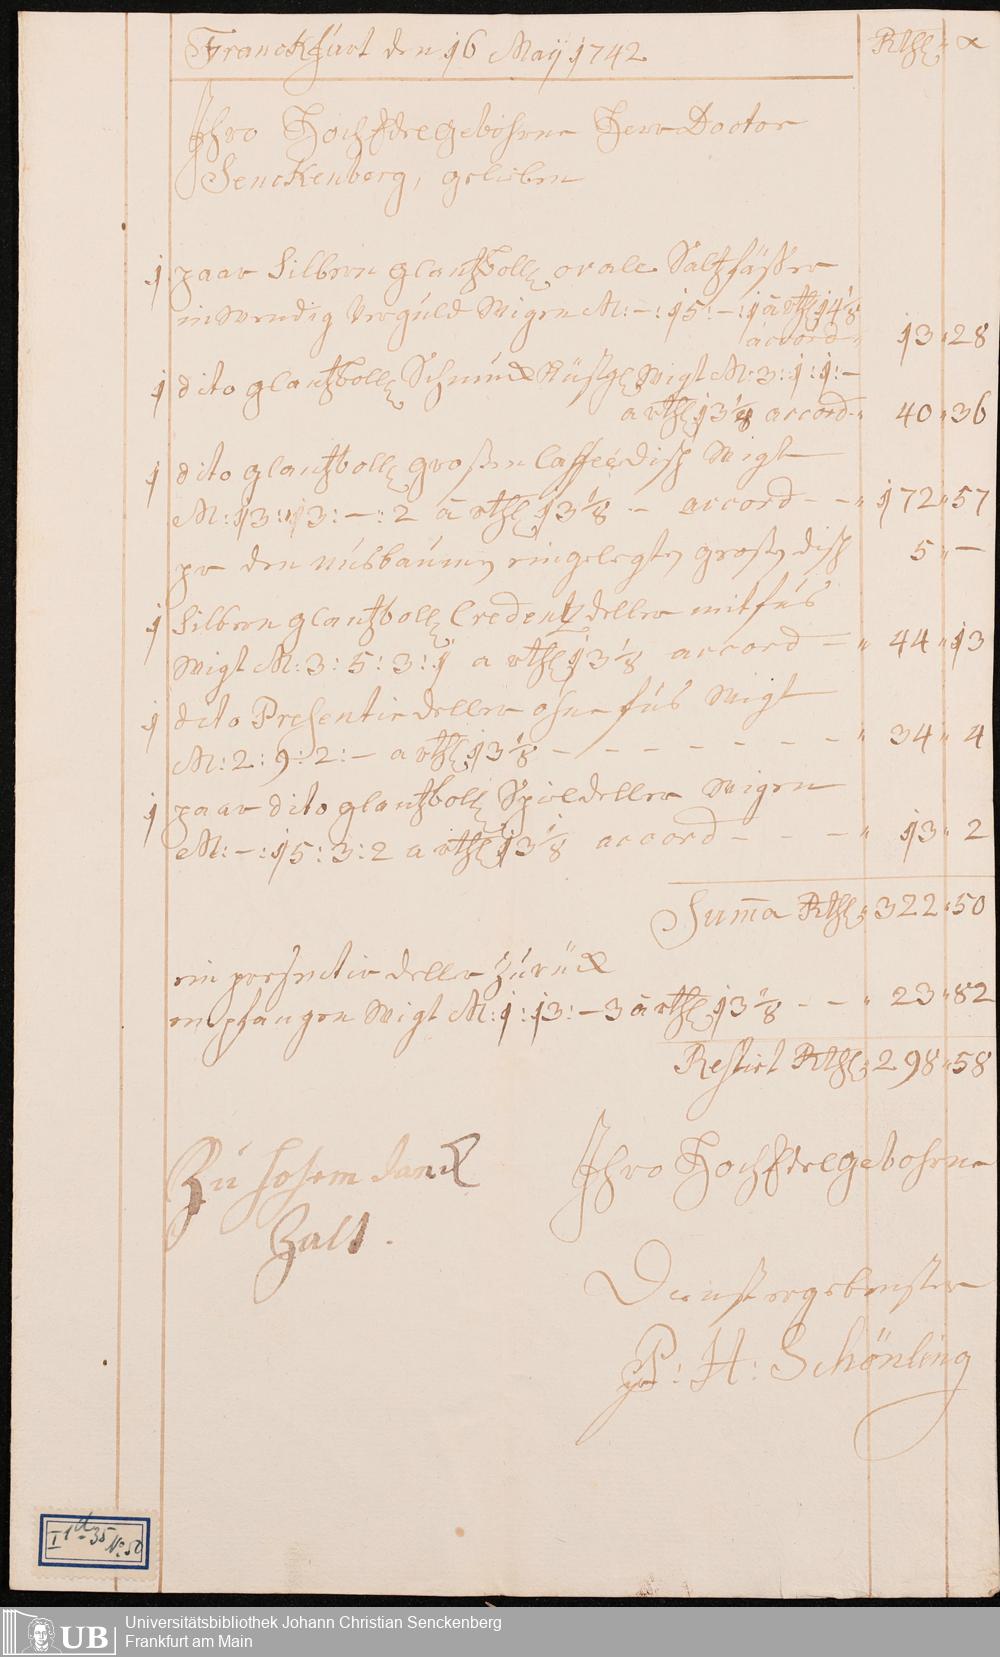 Franckfurt den 16 Maÿ 1742 Rthl. x
Ihro HochEdelgebohrne Herr Doctor
Senckenberg, gelieben
1 paar Silbern glantzvoll orale Saltzfässer
inwendig Verguld Wigen M: – : 15 : – : 1 a rthl 14 1/8
accord 13 " 28
1 dito glantzvoll Schmuck Wigt M: 3 : 1 : 1 : –
a rthl 13 1/8 accord " 40 " 36
1 dito glantzvoll grosen Caffeedisch Wigt
M: 13 : 13 : – : 2 a rthl 13 1/8 – accord – – " 172 " 57
pr den nusbaumen eingelegten grosen disch 5 " –
1 Silbern glantzvoll Credentz deller mit fus
Wigt M: 3 : 5 : 3 : 1 a rthl 13 1/8 accord – " 44 " 13
1 dito Presentir deller ohne fus Wigt
M: 2 : 9 : 2 : – a rthl 13 1/8 – – – – – – – " 34 " 4
1 paar dito glantzvoll Spieldeller Wigen
M: – : 15 : 3 : 2 a rthl 13 1/8 accord – – – " 13 " 2
Summa Rthl " 322 " 50
ein presentir deller Zurück
empfangen Wigt M: 1 : 13 : – 3 a rthl 13 1/8 – – " 23 " 82
Restirt Rthl " 298 " 58
Zu hohem danck
Zalt.
Ihro HochEdelgebohrne
Dienstergebenster
P: H: Schönling
I 1 d 35 No. 50
UB Universitätsbibliothek Johann Christian Senckenberg
Frankfurt am Main